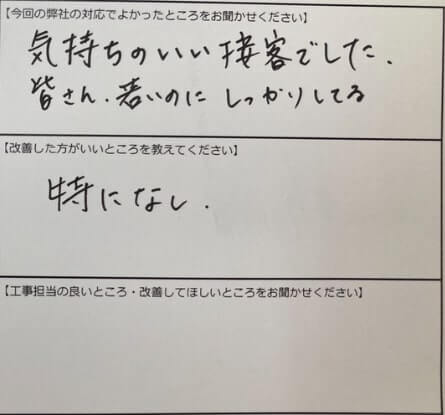 【今回の弊社の対応でよかったところをお聞かせください】
気持ちのいい接客でした.
皆さん.若いのに しっかりしてる
【改善した方がいいところを教えてください】
特になし.
【工事担当の良いところ・改善してほしいところをお聞かせください】